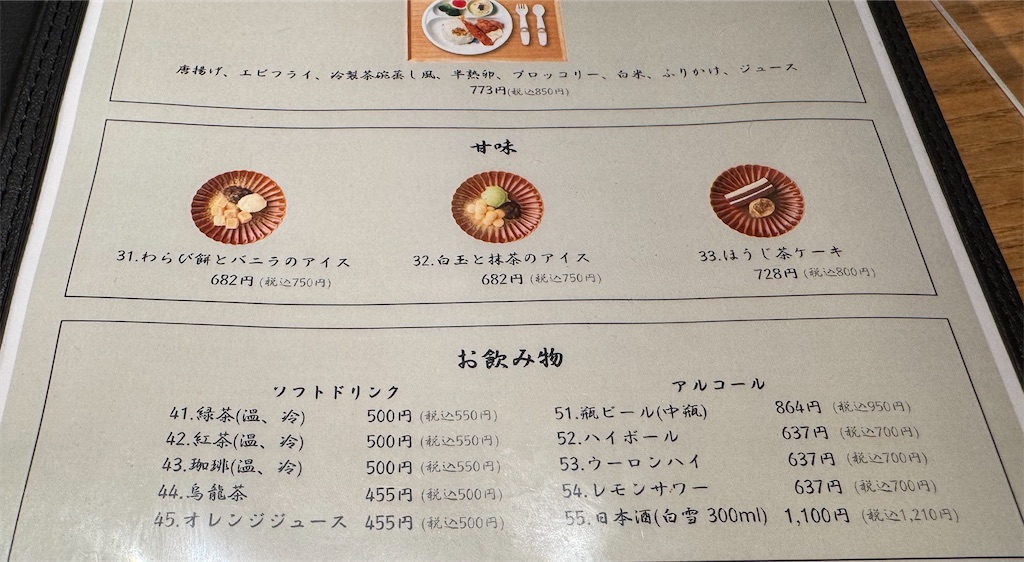 唐揚げ、エビフライ、冷製茶碗蒸し風、半熟卵、ブロッコリー、白米、ふりかけ、ジュース
773円(税込850円)
甘味
31.わらび餅とバニラのアイス
682円(税込750円)
32.白玉と抹茶のアイス
682円(税込750円)
33.ほうじ茶ケーキ
728円(税込800円)
お飲み物
ソフトドリンク
41.緑茶(温、冷) 500円(税込550円)
42.紅茶(温、冷) 500円(税込550円)
43.珈琲(温、冷) 500円(税込550円)
44.烏龍茶 455円(税込500円)
45.オレンジジュース 455円(税込500円)
アルコール
51.瓶ビール(中瓶) 864円(税込950円)
52.ハイボール 637円(税込700円)
53.ウーロンハイ 637円(税込700円)
54.レモンサワー 637円(税込700円)
55.日本酒(白雪 300ml) 1,100円(税込1,210円)